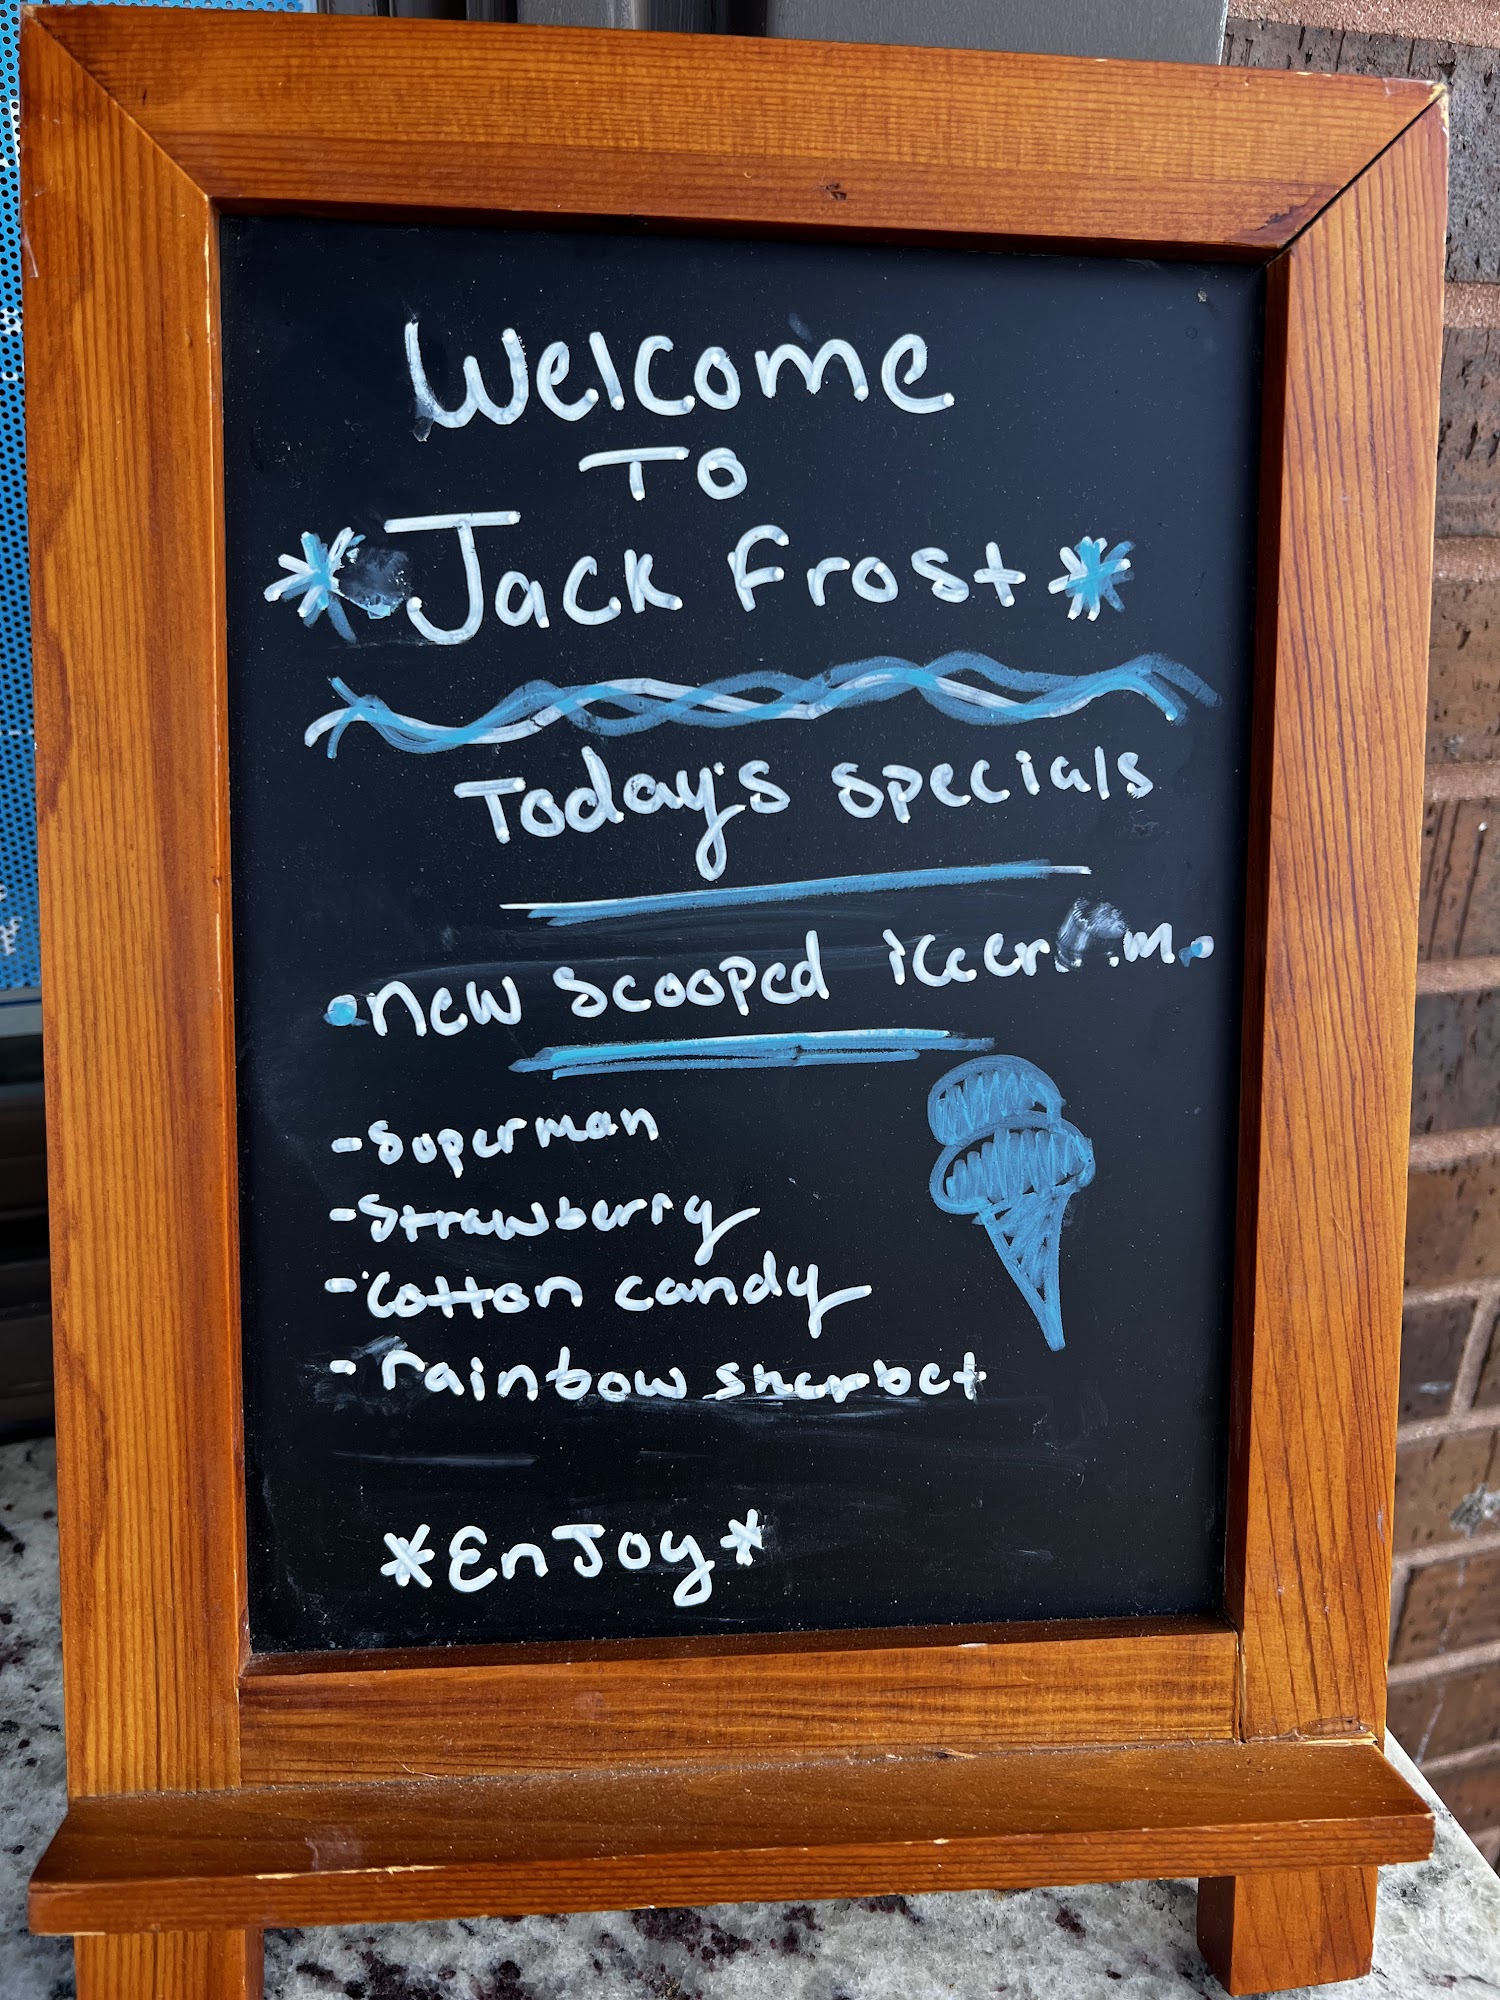 Welcome
To
*Jack Frost*
Today's specials
• new scooped
- Superman
- Strawberry
- Cotton candy
- rainbow sherbet
*EnJoy*